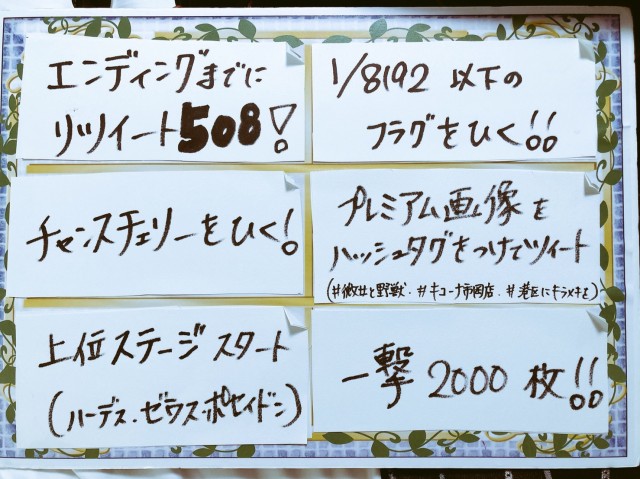 エンディングまでに
リツイート508!
1/8192 以下の
フラグをひく!!
チャンスチェリーをひく!
プレミアム画像を
ハッシュタグをつけてツイート
(#微女と野獣・#キコーナ市岡店・#港区にキラメキを)
上位ステージスタート
(ハーデス・ゼウス・ポセイドン)
一撃 2000 枚!!